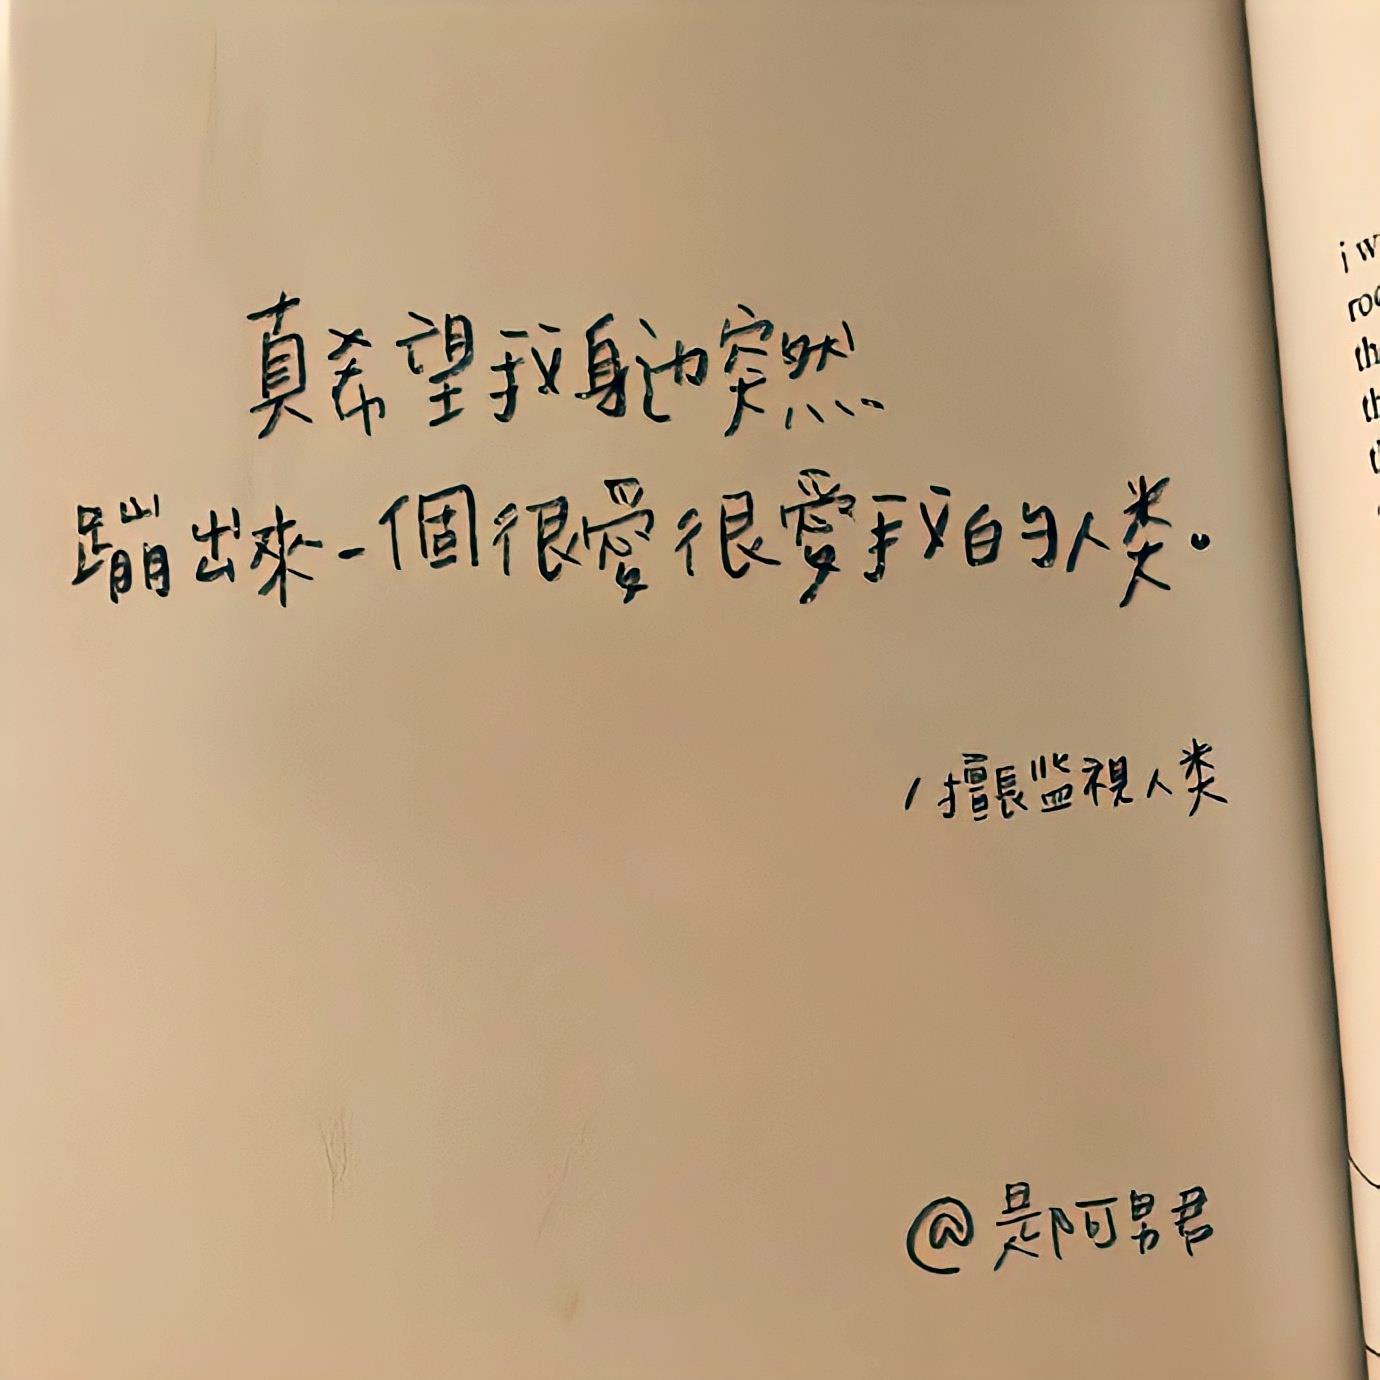 真希望我身边突然
蹦出來一個很愛很愛我的人类。
/擅長监視人类
@是阿男君